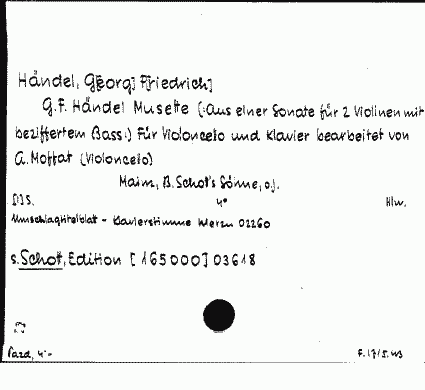 Händel, G[eorg] F[riedrich]
G.F. Händel Musette (:Aus einer Sonate für 2 Violinen mit
beziffertem Bass:) Für Violoncello und Klavier bearbeitet von
A. Moffat (Violoncello)
Mainz, B. Schott's Söhne, o.J.
[1] S. 4° Hlw.
Umschlagtitelblatt - Klavierstimme 02260
s. Schott, Edition [165000] 03618
4:-
F.17/5.43